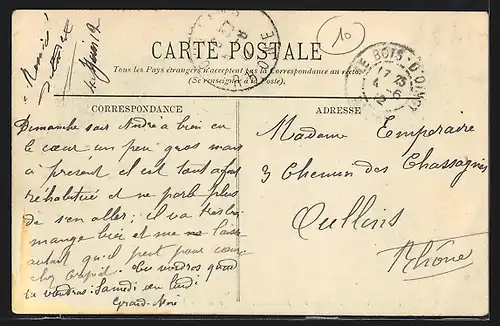 10
CARTE POSTALE
Tous les Pays étrangers n'acceptent pas la Correspondance au recto.
(Se renseigner à la Poste).
BOIS-D'OINGT
CORRESPONDANCE
ADRESSE
Dimanche soir André a bien eu
le cœur un peu gros mais
à présent il est tout à fait
réhabitué et ne parle plus
de s'en aller; il va très bien
mange bien et me
autant qu'il peut pour
chez Tu viendras quand
tu voudras: Samedi ou Lundi
Grand-Mère
Madame Emperaire
3 Chemin des Chassagnes
Oullins
Rhône